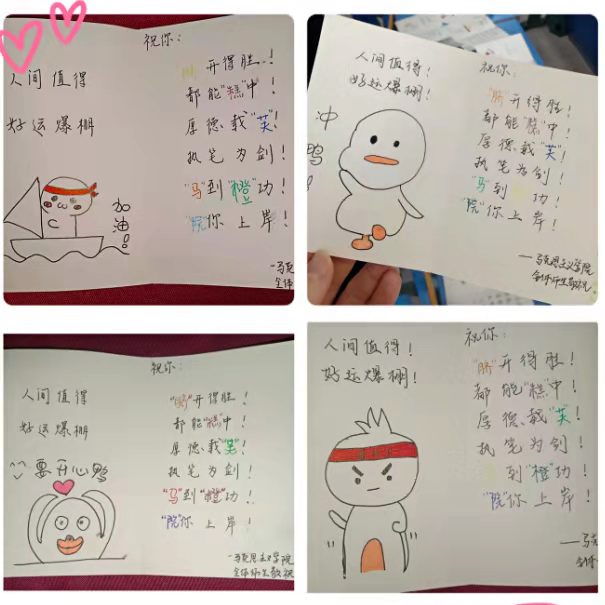 祝你:
人间值得
好运爆棚
加油!
开得胜..!
都能"糕"中!
厚德载"芙"!
执笔为剑!
"马"到"橙"功!
"院"你上岸!
—马克
全体
人间值得!
好运爆棚!
冲鸭!
祝你:
开得胜!
都能"糕"中!
厚德载"芙"!
执笔为剑!
"马"到 功!
"院"你上岸!
——马克思主义学院
全体师生敬祝
祝你:
人间值得
好运爆棚
要开心鸭
开得胜!
都能"糕"中!
厚德载"芙"!
执笔为剑!
"马"到"橙"功!
"院"你上岸!
—马克思主义学院
全体师生敬祝
人间值得!
好运爆棚!
祝你:
开得胜!
都能"糕"中!
厚德载"芙"!
执笔为剑!
到"橙"功!
"院"你上岸!
——马克
全体